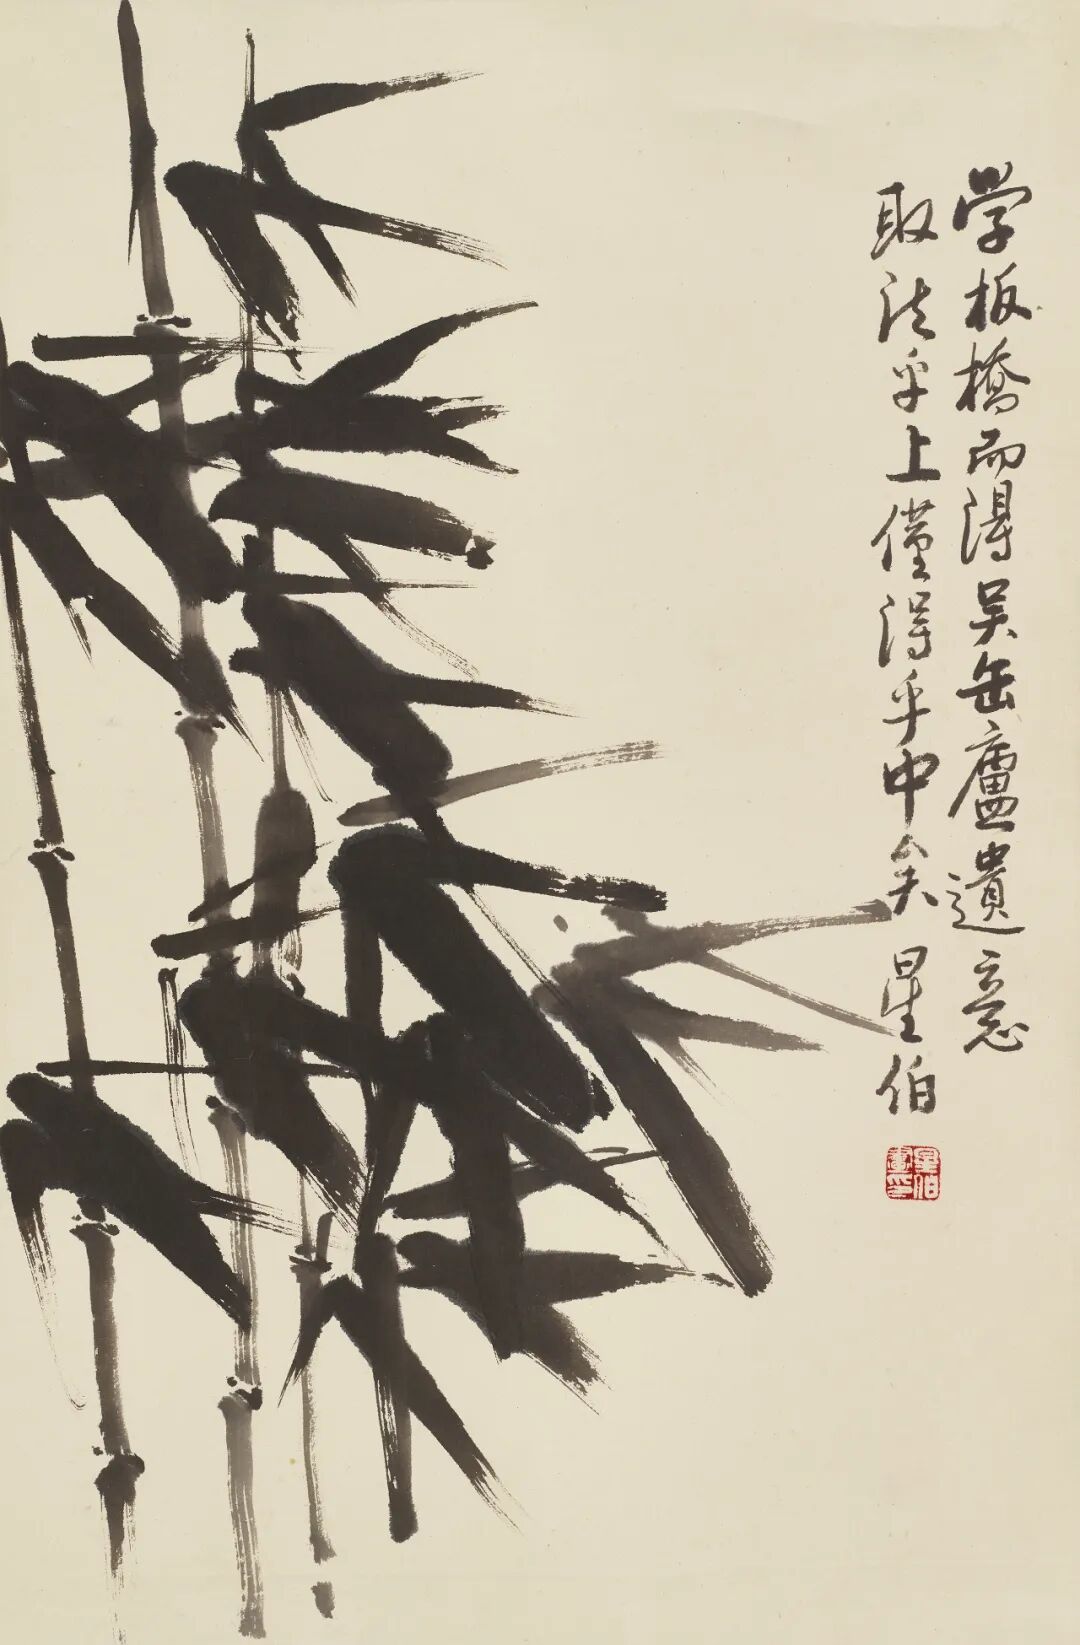 学板橋而得吴缶廬遺意
取法乎上僅得乎中矣 星伯
星伯畫印